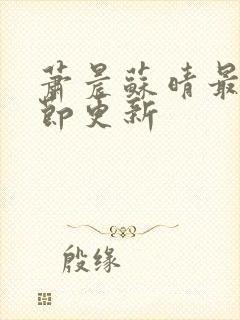 萧晨苏晴最
节更新
殷缘